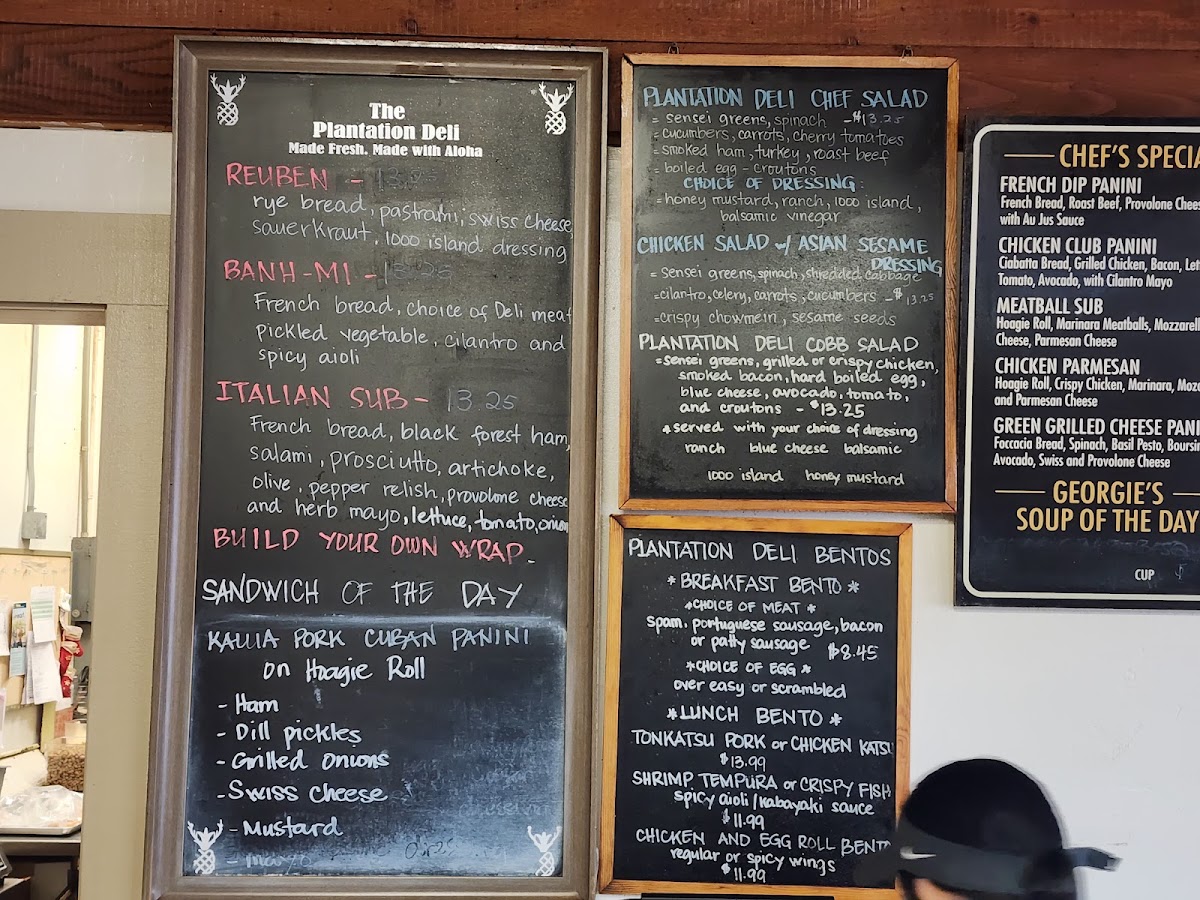 The
Plantation Deli
Made Fresh. Made with Aloha
REUBEN - 13.25
rye bread, pastrami, swiss cheese
sauerkraut, 1000 island dressing
BANH-MI - 13.25
French bread, choice of Deli meat
pickled vegetable, cilantro and
spicy aioli
ITALIAN SUB - 13.25
French bread, black forest ham,
salami, prosciutto, artichoke,
olive, pepper relish, provolone cheese
and herb mayo, lettuce, tomato, onion
BUILD YOUR OWN WRAP.
SANDWICH OF THE DAY
KALUA PORK CUBAN PANINI
on Hoagie Roll
- Ham
- Dill pickles
- Grilled Onions
- Swiss cheese
- Mustard
- mayo
PLANTATION DELI CHEF SALAD
= sensei greens, spinach -$13.25
= cucumbers, carrots, cherry tomatoes
= smoked ham, turkey, roast beef
= boiled egg - croutons
CHOICE OF DRESSING:
= honey mustard, ranch, 1000 island,
balsamic vinegar
CHICKEN SALAD w/ ASIAN SESAME
DRESSING
= sensei greens, spinach, shredded cabbage
= cilantro, celery, carrots, cucumbers -$13.25
= crispy chowmein, sesame seeds
PLANTATION DELI COBB SALAD
= sensei greens, grilled or crispy chicken,
smoked bacon, hard boiled egg,
blue cheese, avocado, tomato,
and croutons - $13.25
* served with your choice of dressing
ranch blue cheese balsamic
1000 island honey mustard
PLANTATION DELI BENTOS
* BREAKFAST BENTO *
*CHOICE OF MEAT *
spam, portuguese sausage, bacon
or patty sausage $8.45
*CHOICE OF EGG *
over easy or scrambled
*LUNCH BENTO *
TONKATSU PORK or CHICKEN KATSU
$13.99
SHRIMP TEMPURA or CRISPY FISH
spicy aioli/kabayaki sauce
$11.99
CHICKEN AND EGG ROLL BENTO
regular or spicy wings
$11.99
CHEF'S SPECIA
FRENCH DIP PANINI
French Bread, Roast Beef, Provolone Chees
with Au Jus Sauce
CHICKEN CLUB PANINI
Ciabatta Bread, Grilled Chicken, Bacon, Let
Tomato, Avocado, with Cilantro Mayo
MEATBALL SUB
Hoagie Roll, Marinara Meatballs, Mozzarell
Cheese, Parmesan Cheese
CHICKEN PARMESAN
Hoagie Roll, Crispy Chicken, Marinara, Moz
and Parmesan Cheese
GREEN GRILLED CHEESE PANI
Foccacia Bread, Spinach, Basil Pesto, Boursin
Avocado, Swiss and Provolone Cheese
GEORGIE'S
SOUP OF THE DAY
CUP